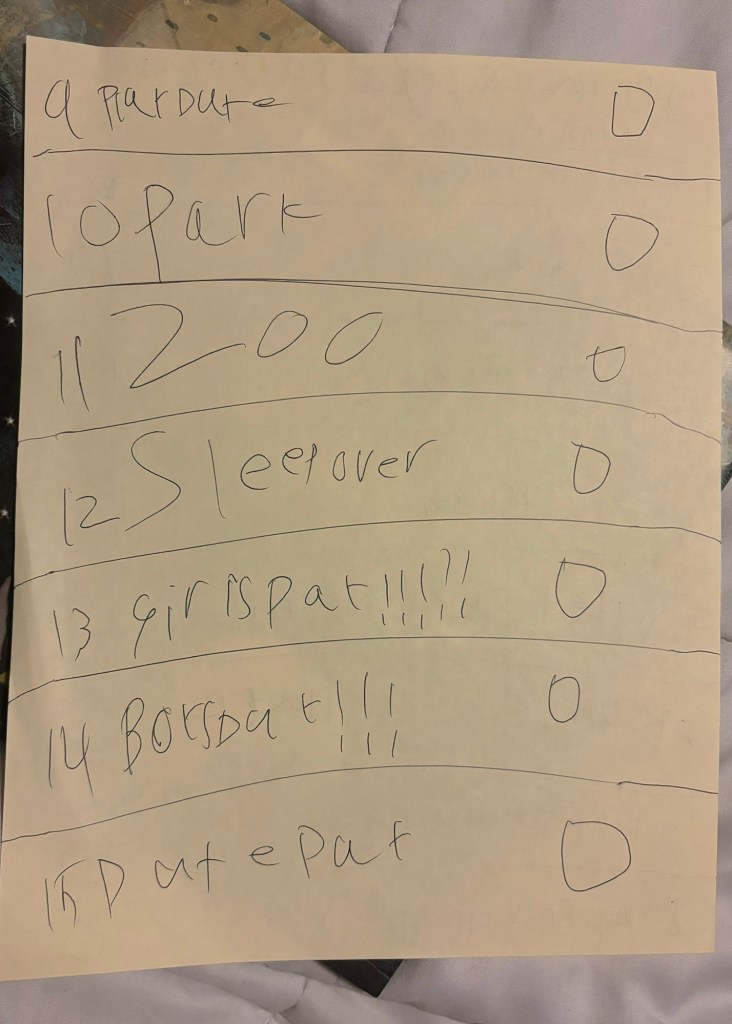 9 PlarDate
10 Park
11 200
12 Sleepover
13 Girlspat!!!!!
14 BoysDat!!!
15 DatePat